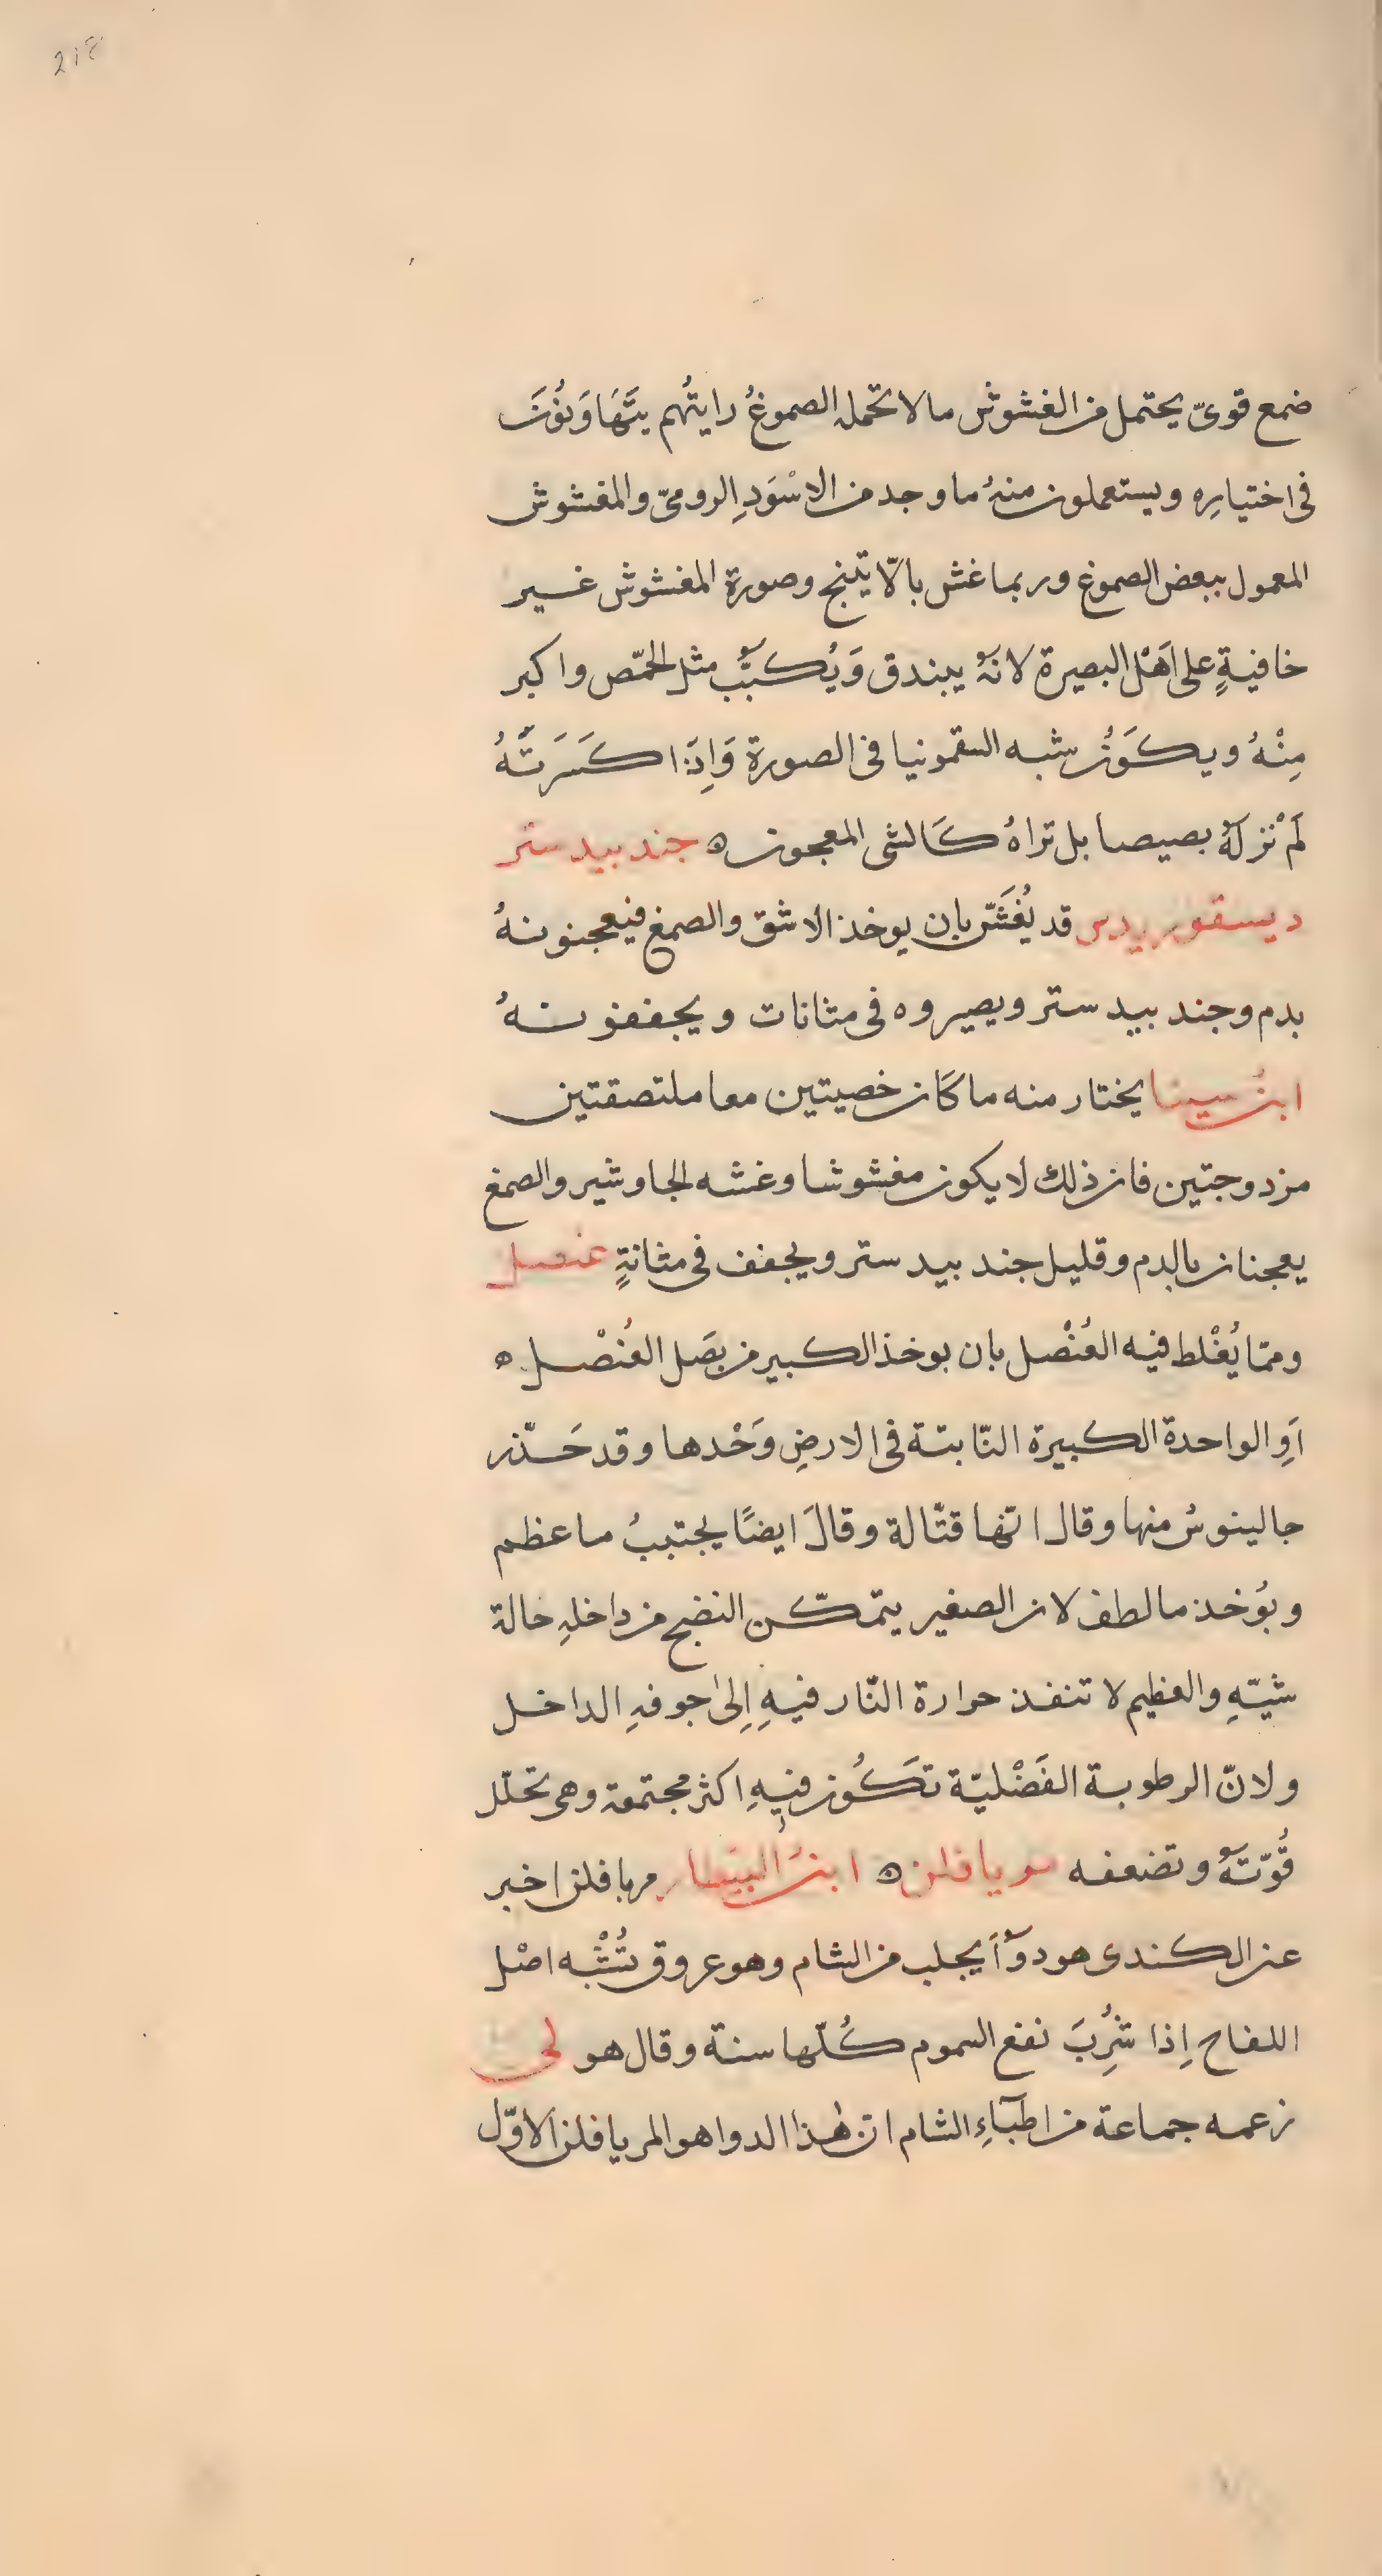 218
ضمع قوىّ يحتمل من الغشوش مالا تحمله الصموغُ رايتُهم يتَهَاوَنُونَ
فى اختيارِه ويستعملون منهُ ما وجد من الاسْوَدِ الرومىّ والمغشوش
المعمول ببعض الصموغ وربما غش بالّاتينج وصورة المغشوش غير
خافيةٍ على اَهْل البصيرة لانهُ يبندق وَيُكبَّب مثل الحمّص واكبر
مِنْهُ ويكَوَّنُ شبه السقمونيا فى الصورة وَاِذَا كَسَرَتَّهُ
لَمْ تر لَهُ بصيصا بل تراهُ كَالشى المعجون ه جند بيد ستر
ديسقوريدس قد يُغَشّ بان يوخذ الاشق والصمغ فيعجنونهُ
بدم وجند بيد ستر ويصيروه فى مثانات ويجففونهُ
ابنُ سينا يختار منه ما كَان خصيتين معا ملتصقتين
مزدوجتين فان ذلك لا يكون مغشوشا وغشه الجاوشير والصمغ
يعجنان بالدم وقليل جند بيد ستر ويجفف فى مثانةٍ عنصل
وممّا يُغْلط فيه العُنْصل بان يوخذ الكبير من بصَل العُنْصل ه
اَوِ الواحدة الكبيرة النّابتة فى الارضِ وَحْدها وقد حَذّر
جالينوسُ منها وقال انّها قتّالة وقالَ ايضًا يجتببُ ما عظم
ويُوخذ ما لطف لان الصغير يتمكّن النضج من داخلهِ حالة
شيّهِ والعظيم لا تنفذ حرارة النّار فيهِ اِلى جوفهِ الداخل
ولانّ الرطوبة الفَضْليّة تكَُون فيهِ اكثر مجتمعة وهى تحلّل
قُوّتَهُ وتضعفه مريافلن ه ابنُ البيَطار مريافلن اخبر
عن الكندى هو دوآءَ يجلب من الشام وهو عروق تُشْبه اصْل
اللفاح اِذا شُرِبَ نفع السموم كُلّها سنة وقال هو لى
زعمه جماعة من اطبآءِ الشام ان هٰذا الدوا هو المريافلن الاوّل